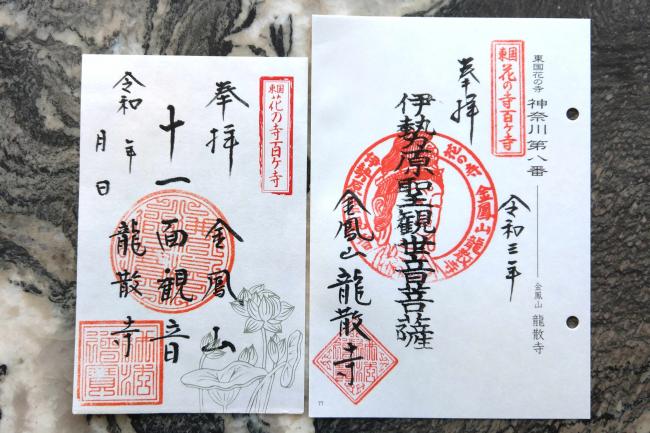 東国
花の寺百ヶ寺
奉拝
金鳳山
十一面観音
龍散寺
令和 年
月 日
東国花の寺
神奈川第八番
金鳳山 龍散寺
東国
花の寺百ヶ寺
令和三年
奉拝
伊勢原聖観世音菩薩
花の寺 金鳳山 龍散寺
金鳳山龍散寺
77